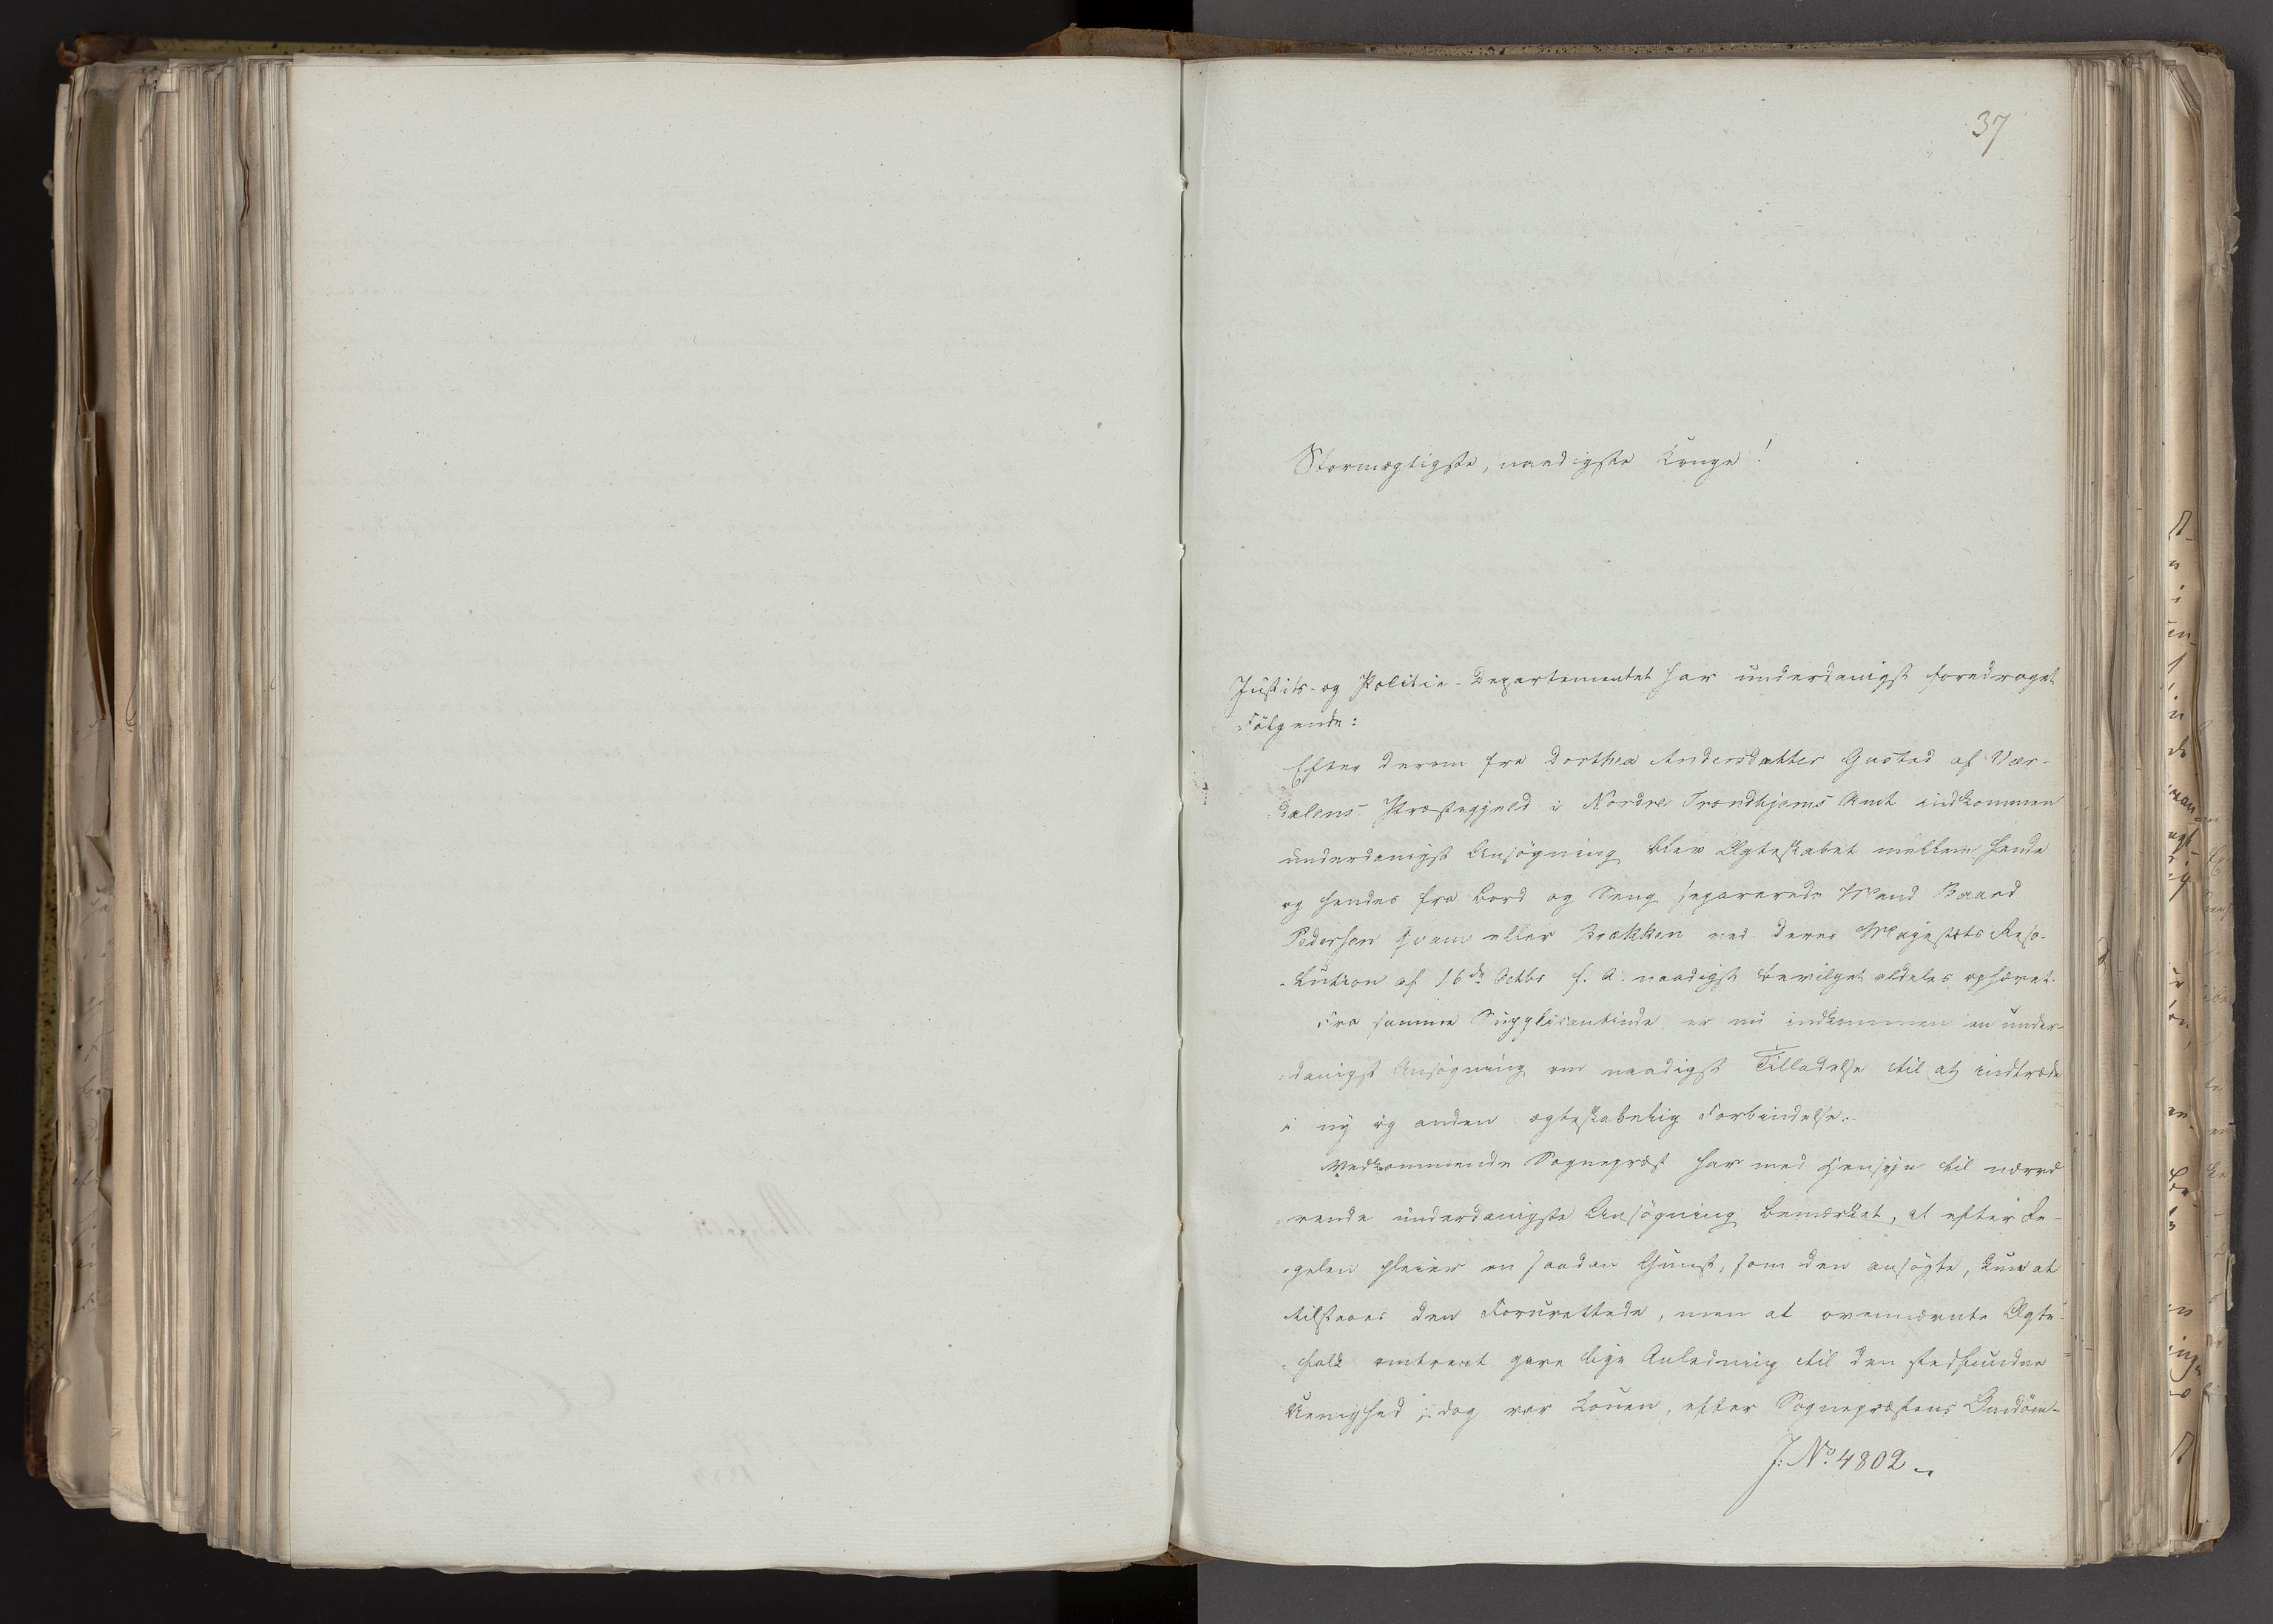 37
Stormægtigste, naadigste Konge!
Justits- og Politie-Departementet har underdanigst foredraget
Følgende:
Efter derom fra Dorthea Andersdatter Gustad af Vær-
dalens Præstegjeld i Nordre Trondhjems Amt indkommen
underdanigst Ansøgning blev Ægteskabet mellem hende
og hendes fra Bord og Seng separerede Mand Baard
Pedersen Qvam eller Brækken ved Deres Majestæts Reso-
lution af 16de Octbr f. A. naadigst bevilget aldeles ophævet.
Fra samme Supplicantinde er nu indkommen en under-
danigst Ansøgning om naadigst Tilladelse til at indtræde
i ny og anden ægteskabelig Forbindelse.
Vedkommende Sognepræst har med Hensyn til nærvæ
rende underdanigste Ansøgning bemærket, at efter Re-
gelen pleier en saadan Gunst, som den ansøgte, kun at
tilstaaes den Forurettede, men at ovennævnte Ægte-
folk omtrent gave lige Anledning til den stedfundne
Uenighed; dog var Konen, efter Sognepræstens Bedøm-
J: No 4802